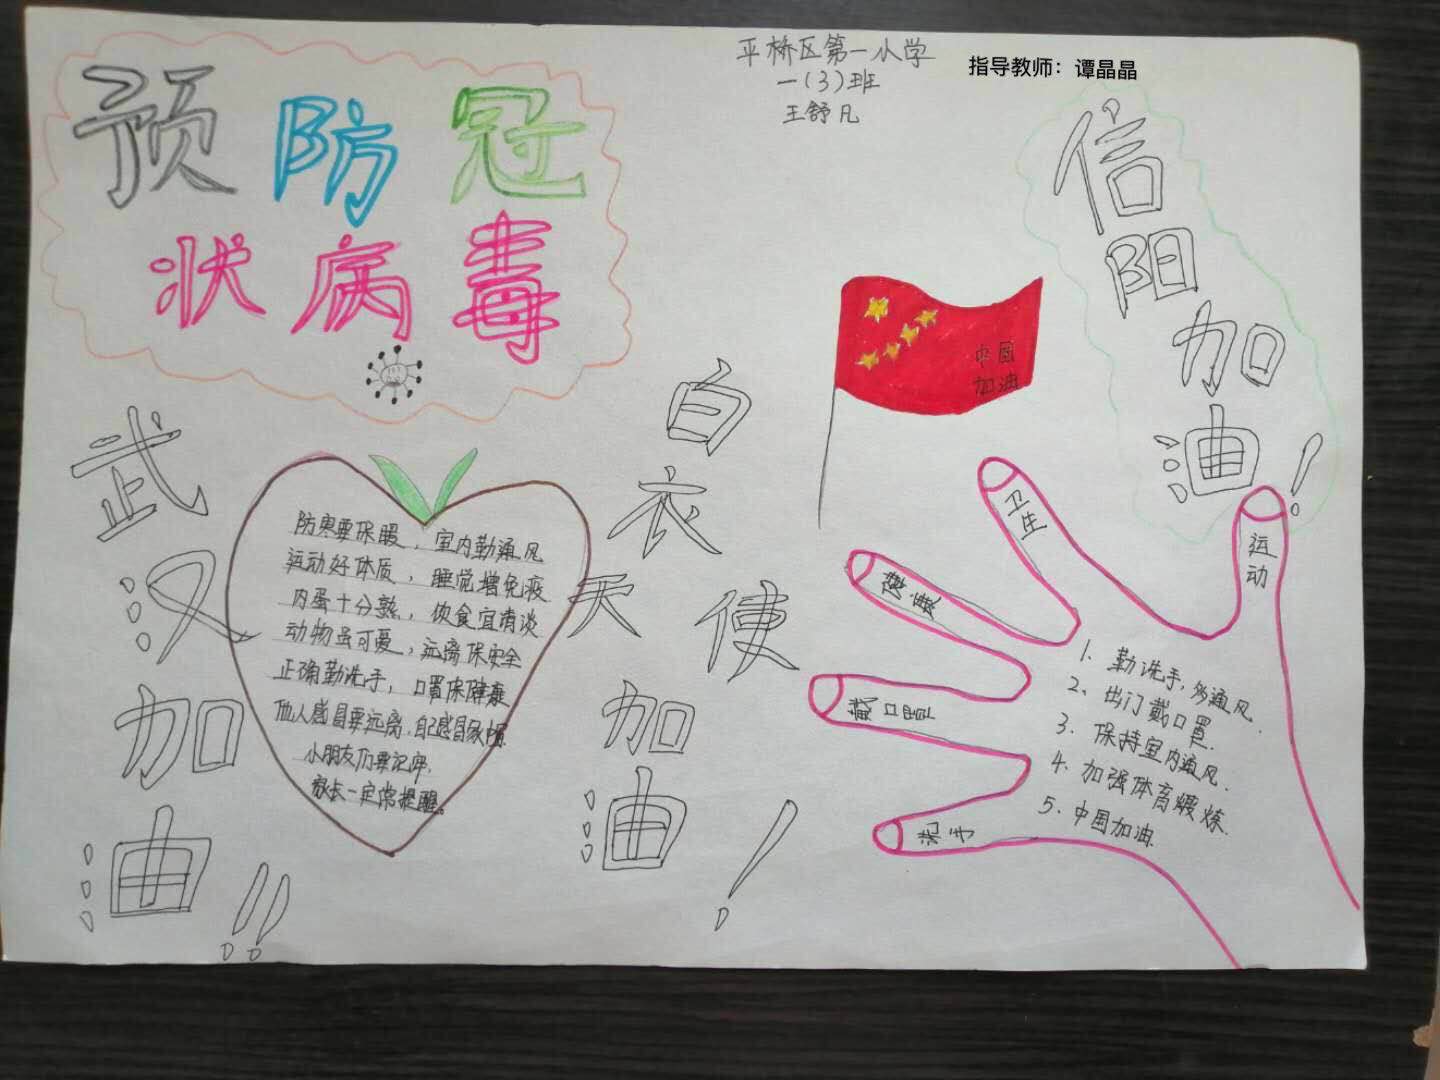 平桥区第一小学
一(3)班
王舒凡
指导教师：谭晶晶
预防冠
状病毒
信阳加油！
中国
加油
武汉加油!!
防寒要保暖，室内勤通风
运动好体质，睡觉增免疫
肉蛋十分熟，饮食宜清淡
动物虽可爱，远离保安全
正确勤洗手，口罩保健康
他人感冒要远离，自己感冒
小朋友们要记牢，
家长一定常提醒。
白衣天使加油！
卫生
运动
健康
戴口罩
洗手
1、勤洗手，多通风.
2、出门戴口罩.
3、保持室内通风.
4、加强体育锻炼.
5、中国加油.